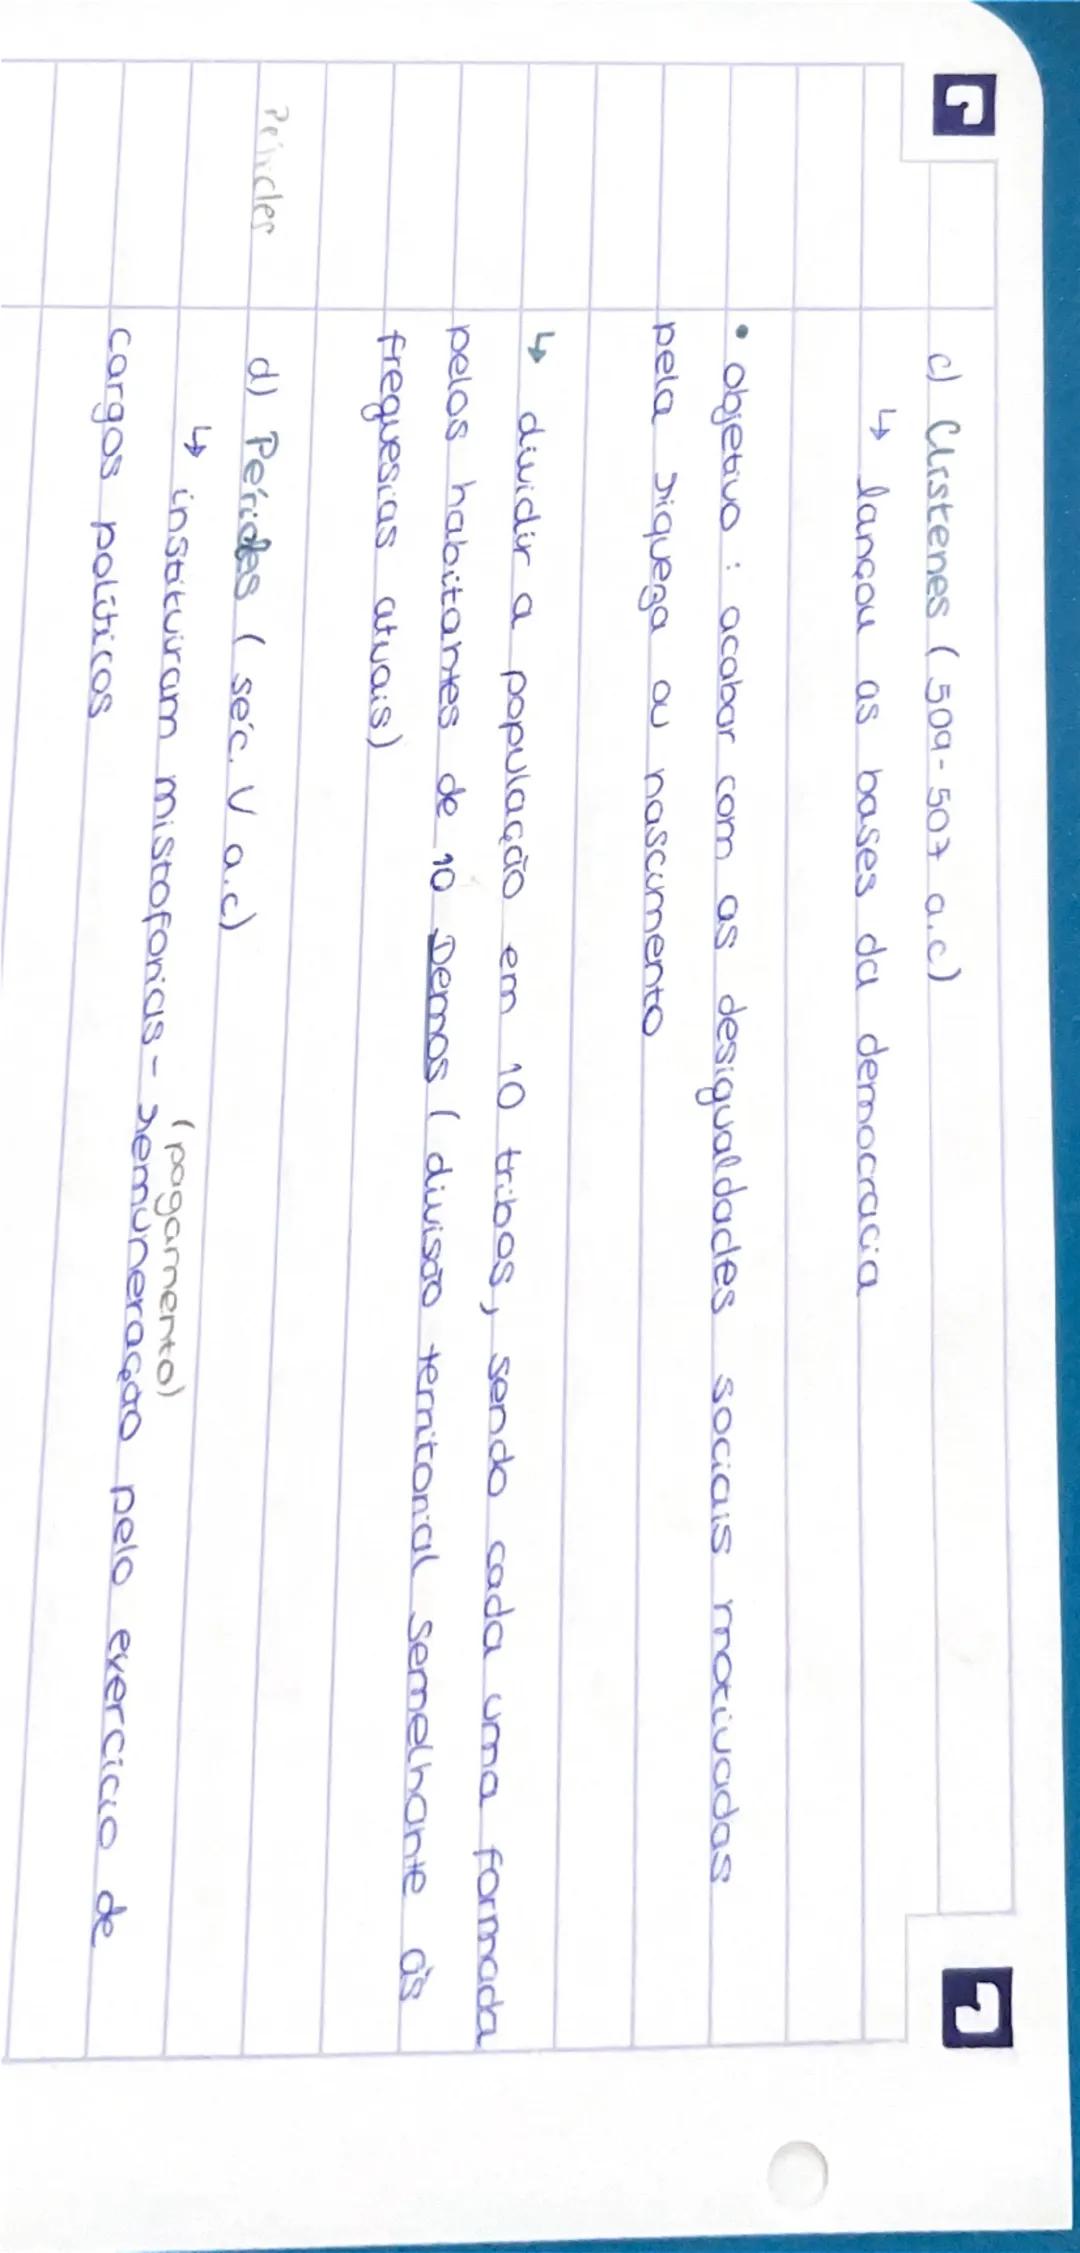 c) Clístenes (509-507 a.c)
↳ lançou as bases da democracia
• objetivo: acabar com as desigualdades sociais motivadas
pela riqueza ou nascimento
↳ dividir a população em 10 tribos, sendo cada uma formada
pelos habitantes de 10 Demos (divisão territorial semelhante às
freguesias atuais)
Péricles
d) Péricles (séc. V a.c)
(pagamento)
↳ instituiram mistoforias - remuneração pelo exercício de
cargos políticos